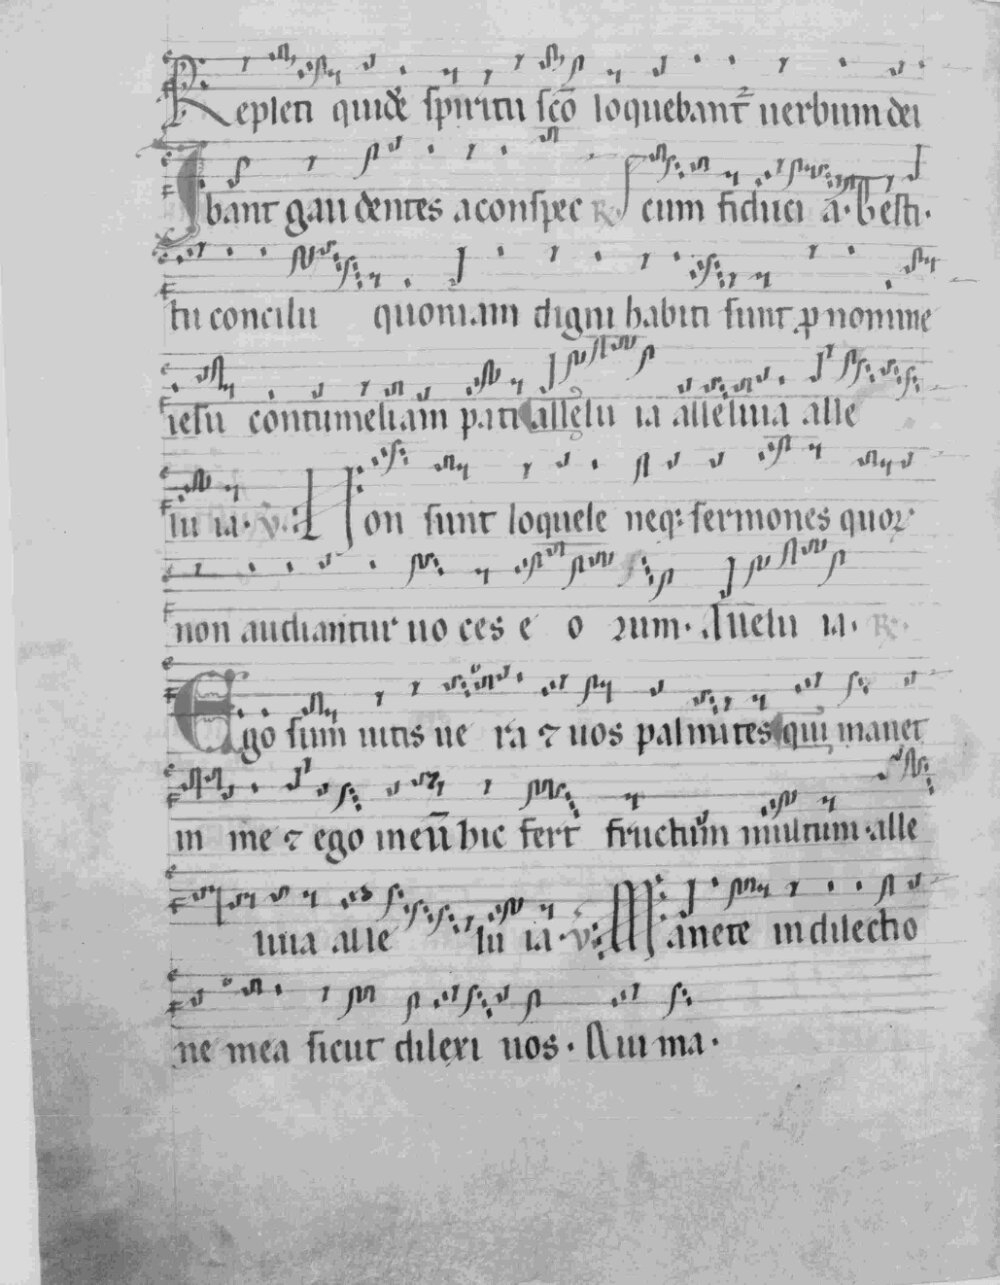 Repleti quidē spiritu scō loquebant᷑ uerbum dei
Ibant gaudentes a conspec ℟. cum fiduci a. b esti.
tu concilii quoniam digni habiti sunt ꝓ nomine
iesu contumeliam pati allelu ia alleluia alle
lu ia. ℣. Non sunt loquele neq; sermones quoꝝ
non audiantur uo ces e o rum. Alielu ia. ℟.
Ego sum uitis ue ra ⁊ uos palmites qui manet
in me ⁊ ego in eū hic fert fructum multum alle
luia alle lu ia. ℣. Manete in dilectio
ne mea sicut dilexi uos. Qui ma.